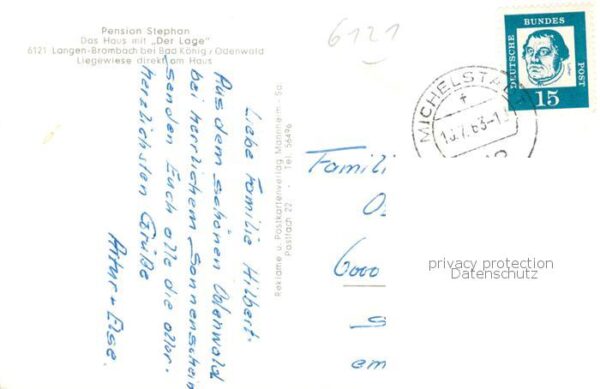 Pension Stephan
Das Haus mit „Der Lage"
6121 Langen-Brombach bei Bad König / Odenwald
Liegewiese direkt am Haus
6121
DEUTSCHE
BUNDES
POST
15
MICHELSTADT
Liebe Familie Hilbert.
Aus dem schönen Odenwald
bei herrlichem Sonnenschein
senden Euch alle die aller-
herzlichsten Grüße
Artur + Else.
Reklame u. Postkartenverlag Mannheim-
Postfach 22 - Tel. 56496
Famili
6000
S
em
privacy protection
Datenschutz